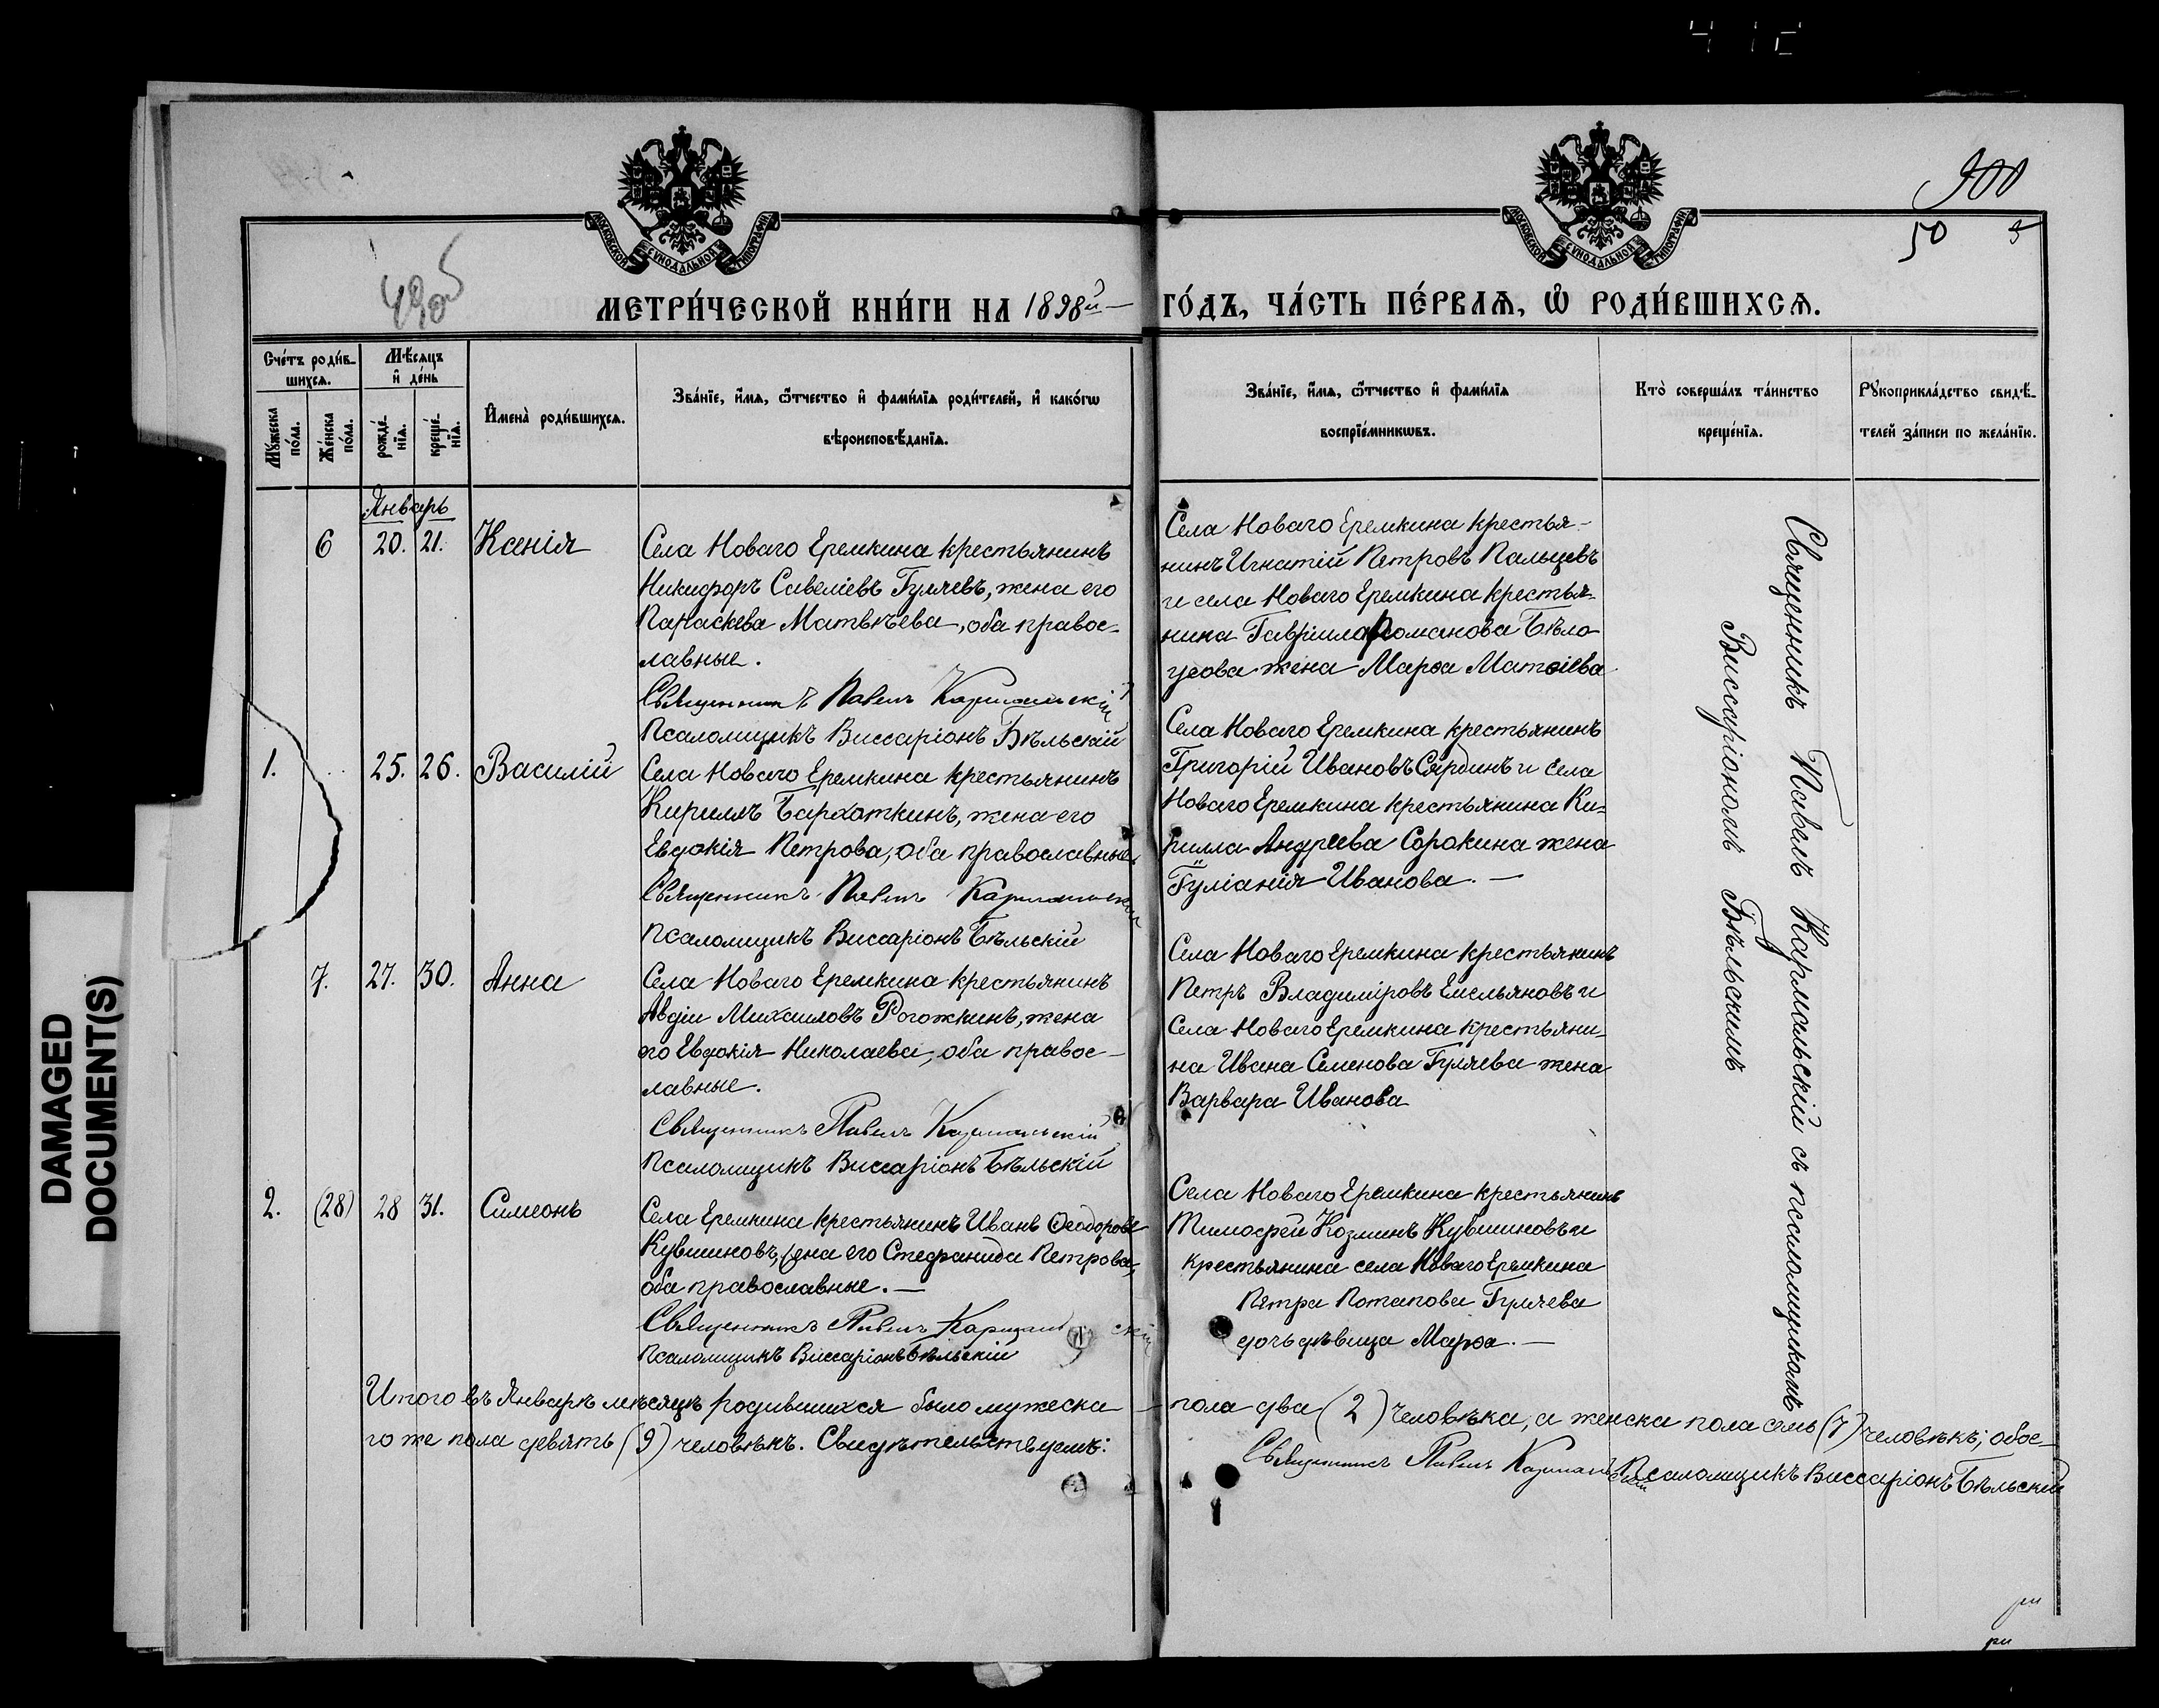 900
50
490б
МОСКОВСКОЙ СѴНОДАЛЬНОЙ ТИПОГРАФІИ
МОСКОВСКОЙ СѴНОДАЛЬНОЙ ТИПОГРАФІИ
МЕТРИ́ЧЕСКОЙ КНИ́ГИ НА 1898й — ГО́ДЪ, ЧА́СТЬ ПЕ́РВАѦ, Ѿ РОДИ́ВШИХСѦ.
Сче́тъ роди́в-
шихсѧ.
Мѣ́сѧцъ
и҆ де́нь
Мꙋ́жеска
по́ла.
Же́нска
по́ла.
рожде́-
нїѧ.
креще́-
нїѧ.
И҆мена̀ роди́вшихсѧ.
Зва́нїе, и҆́мѧ, ѻ҆́тчество и҆ фами́лїѧ роди́телей, и҆ како́гѡ
вѣроисповѣ́данїѧ.
Зва́нїе, и҆́мѧ, ѻ҆́тчество и҆ фами́лїѧ
воспрїе́мникѡвъ.
Кто̀ соверша́лъ та́инство
креще́нїѧ.
Рꙋкоприкла́дство свидѣ́-
телей за́писи по жела́нїю.
Январь
6 20. 21. Ксенія
Села Новаго Еремкина крестьянинъ
Никифоръ Савеліевъ Гуляевъ, жена его
Параскева Матвѣева, оба правос-
лавные.
Священникъ Павелъ Кармальскій
Псаломщикъ Виссаріонъ Бѣльскій
Села Новаго Еремкина крестья-
нинъ Игнатій Петровъ Пальцевъ
и села Новаго Еремкина крестья-
нина Гавріила Романова Бѣло
усова жена Марѳа Матѳіева
1. 25. 26. Василій
Села Новаго Еремкина крестьянинъ
Кириллъ Бархоткинъ, жена его
Евдокія Петрова, оба православные
Священникъ Павелъ Кармальскій
Псаломщикъ Виссаріонъ Бѣльскій
Села Новаго Еремкина крестьянинъ
Григорій Ивановъ Сардинъ и села
Новаго Еремкина крестьянина Ки-
рилла Андреева Сорокина жена
Іуліанія Иванова. —
7. 27. 30. Анна
Села Новаго Еремкина крестьянинъ
Авдіи Михаиловъ Рогожкинъ, жена
его Евдокія Николаева, оба правос-
лавные.
Священникъ Павелъ Кармальскій
Псаломщикъ Виссаріонъ Бѣльскій
Села Новаго Еремкина крестьянинъ
Петръ Владиміровъ Емельяновъ и
Села Новаго Еремкина крестьяни-
на Ивана Семенова Гуляева жена
Варвара Иванова
2. (28) 28 31. Симеонъ
Села Еремкина крестьянинъ Иванъ Ѳеодоровъ
Кувшиновъ, жена его Стефанида Петрова,
оба православные. —
Священникъ Павелъ Кармальскій
Псаломщикъ Виссаріонъ Бѣльскій
Села Новаго Еремкина крестьянинъ
Тимоѳей Козминъ Кувшиновъ и
крестьянина села Новаго Еремкина
Петра Потапова Гуляева
дочь дѣвица Марѳа. —
Священникъ Павелъ Кармальскій съ псаломщикомъ
Виссаріономъ Бѣльскимъ
Итого въ Январѣ мѣсяцѣ родившихся было мужеска пола два (2) человѣка, а женска пола семь (7) человѣкъ; обое-
го же пола девять (9) человѣкъ. Свидѣтельствуемъ: Священникъ Павелъ Кармальскій Псаломщикъ Виссаріонъ Бѣльскій
DAMAGED
DOCUMENT(S)